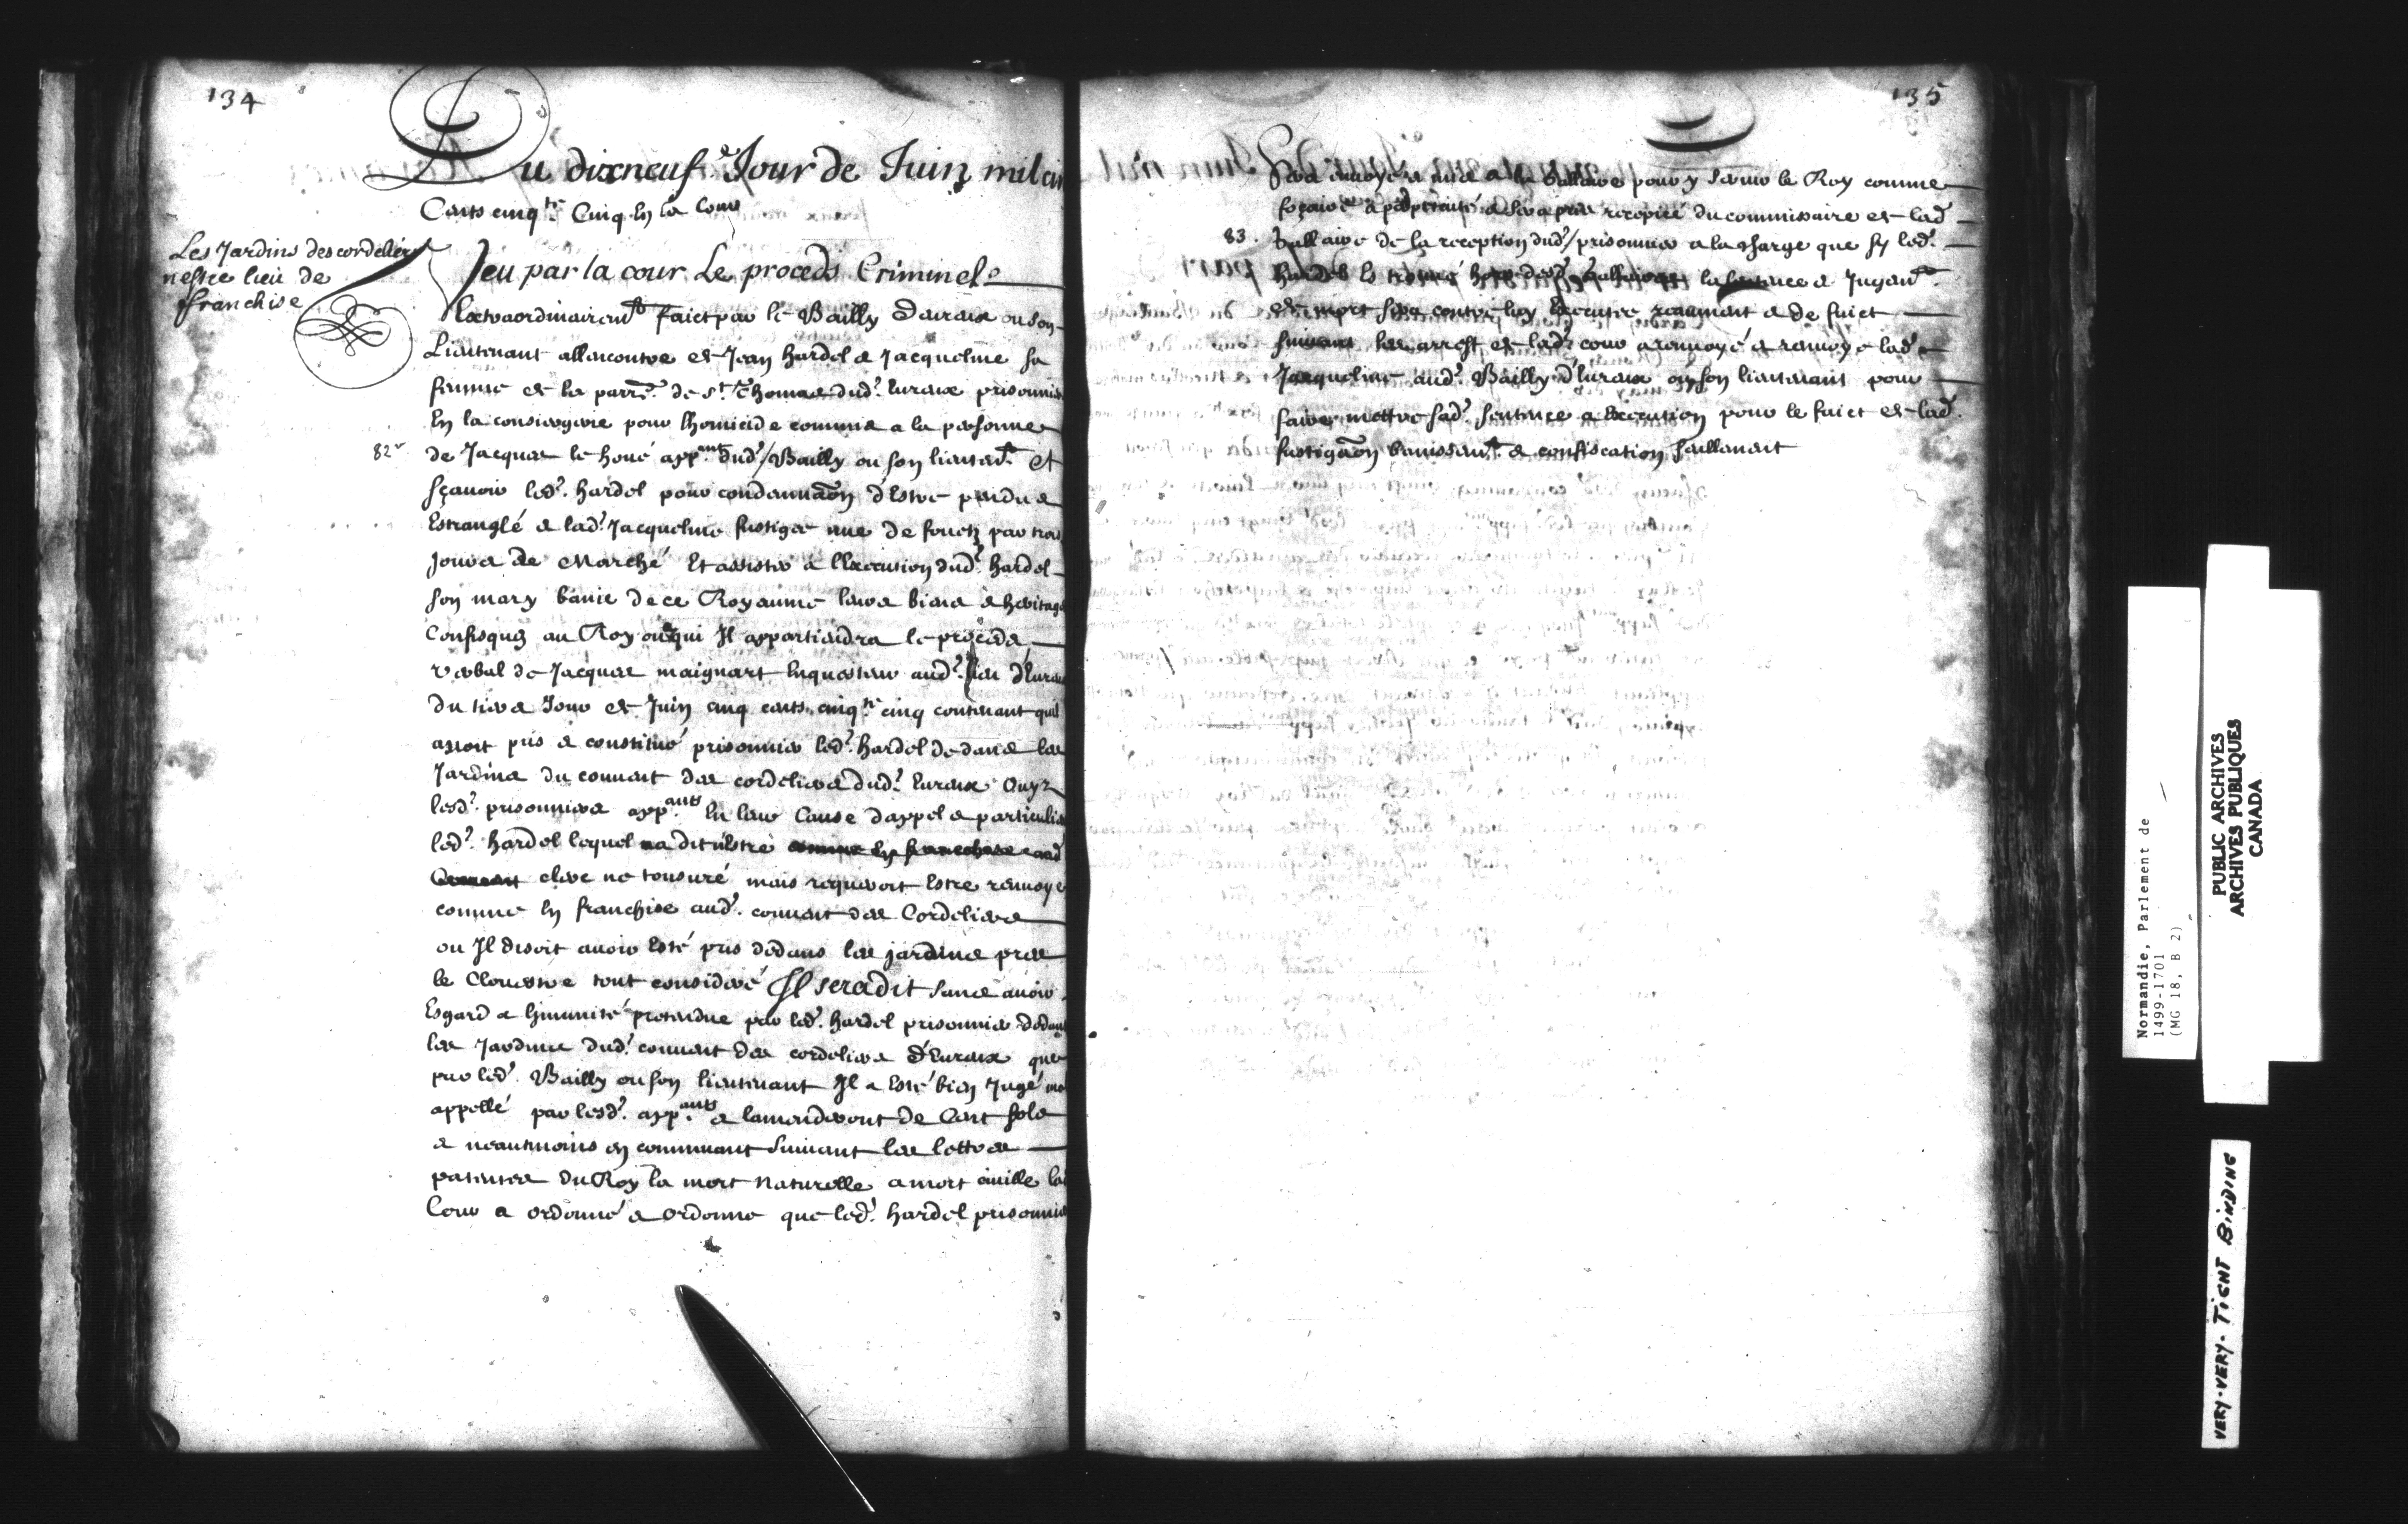 134
Du dixneuf.e Jour de Juin mil cin
Cents cinq.te Cinq En la Cour
Les Jardins des cordeliers
nestre lieu de
franchise
Veu par la cour Le proceds Criminel
Extraordinairem.t faict par le Bailly Deureux ou son
Lieutenant allencontre de Jean hardel & Jacqueline sa
femme de la parr.e de s.t Thomas dud.t Eureux prisonniers
En la consiergerie pour lhomicide commis a la personne
82 v
de Jacques le houé app.ants dud.t Bailly ou son lieuten.t et
sçauoir led.t hardel pour condemnaon d'Estre pendu &
Estranglé & lad.t Jacqueline fustigée nue de fouetz par trois
Jours de Marché Et assister a lExecution dud.t hardel
son mary banie de ce Royaume leurs biens & heritages
Confisquez au Roy ou a qui Il appartiendra le proceds
verbal de Jacques maignart Enquesteur aud.t lieu dEureux
du tiers Jour de Juin cinq cents cinq.te cinq contenant quil
auoit pris & constitué prisonnier led.t hardel dedans les
Jardins du couuent des cordeliers dud.t Eureux Ouyz
lesd.t prisonniers app.ants En leur Cause dappel & particulier
led.t hardel lequel na dit Estre
clerc ne tonsuré mais requeroit Estre renuoyé
comme En franchise aud.t couuent des Cordeliers
ou Il disoit auoir Esté pris dedans les jardins pres
le Clouestre tout consideré Il sera dit sans auoir
Esgard a limunité pretendue par led.t hardel prisonnier dedans
les Jardins dud.t couuent des cordeliers d'Eureux que
par led.t Bailly ou son lieutenant Il a Esté bien Jugé mal
appellé par lesd.t app.ants & lamenderont de Cent solz
& neantmoins en commuant suiuant les lettres
patentes du Roy la mort naturelle a mort ciuille la
Cour a ordonné & ordonne que led.t hardel prisonnier
135
Sera enuoyé & mis a la Gallaire pour y seruir le Roy comme
forçaire a perpetuité & sera pris recepicé du commissaire de lad.t
83.
Gallaire de la reception dud.t prisonnier a la charge que sy led.t
hardel Es trouué hors desd.t gallaires la sentence & Jugem.t
de mort sera contre luy Executée reaument & de faict
suiuant les arrest de lad.t cour a renuoyé & renuoye lad.t
Jacqueline aud.t Bailly d'Eureux ou son lieutenant pour
faire mettre sad.t sentence a Execution pour le faict de lad.t
fustigaon banissem.t & confiscation saillement
Normandie, Parlement de
1499-1701
(MG 18, B 2)
PUBLIC ARCHIVES
ARCHIVES PUBLIQUES
CANADA
VERY-VERY-TIGHT BINDING